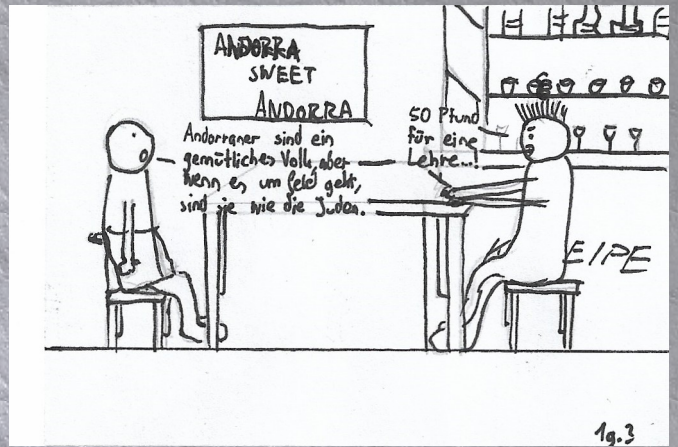 ANDORRA
SWEET
ANDORRA
Andorraner sind ein
gemütliches Volk, aber
wenn es um Geld geht,
sind sie wie die Juden.
50 Pfund
für eine
Lehre...!
EIPE
1g.3